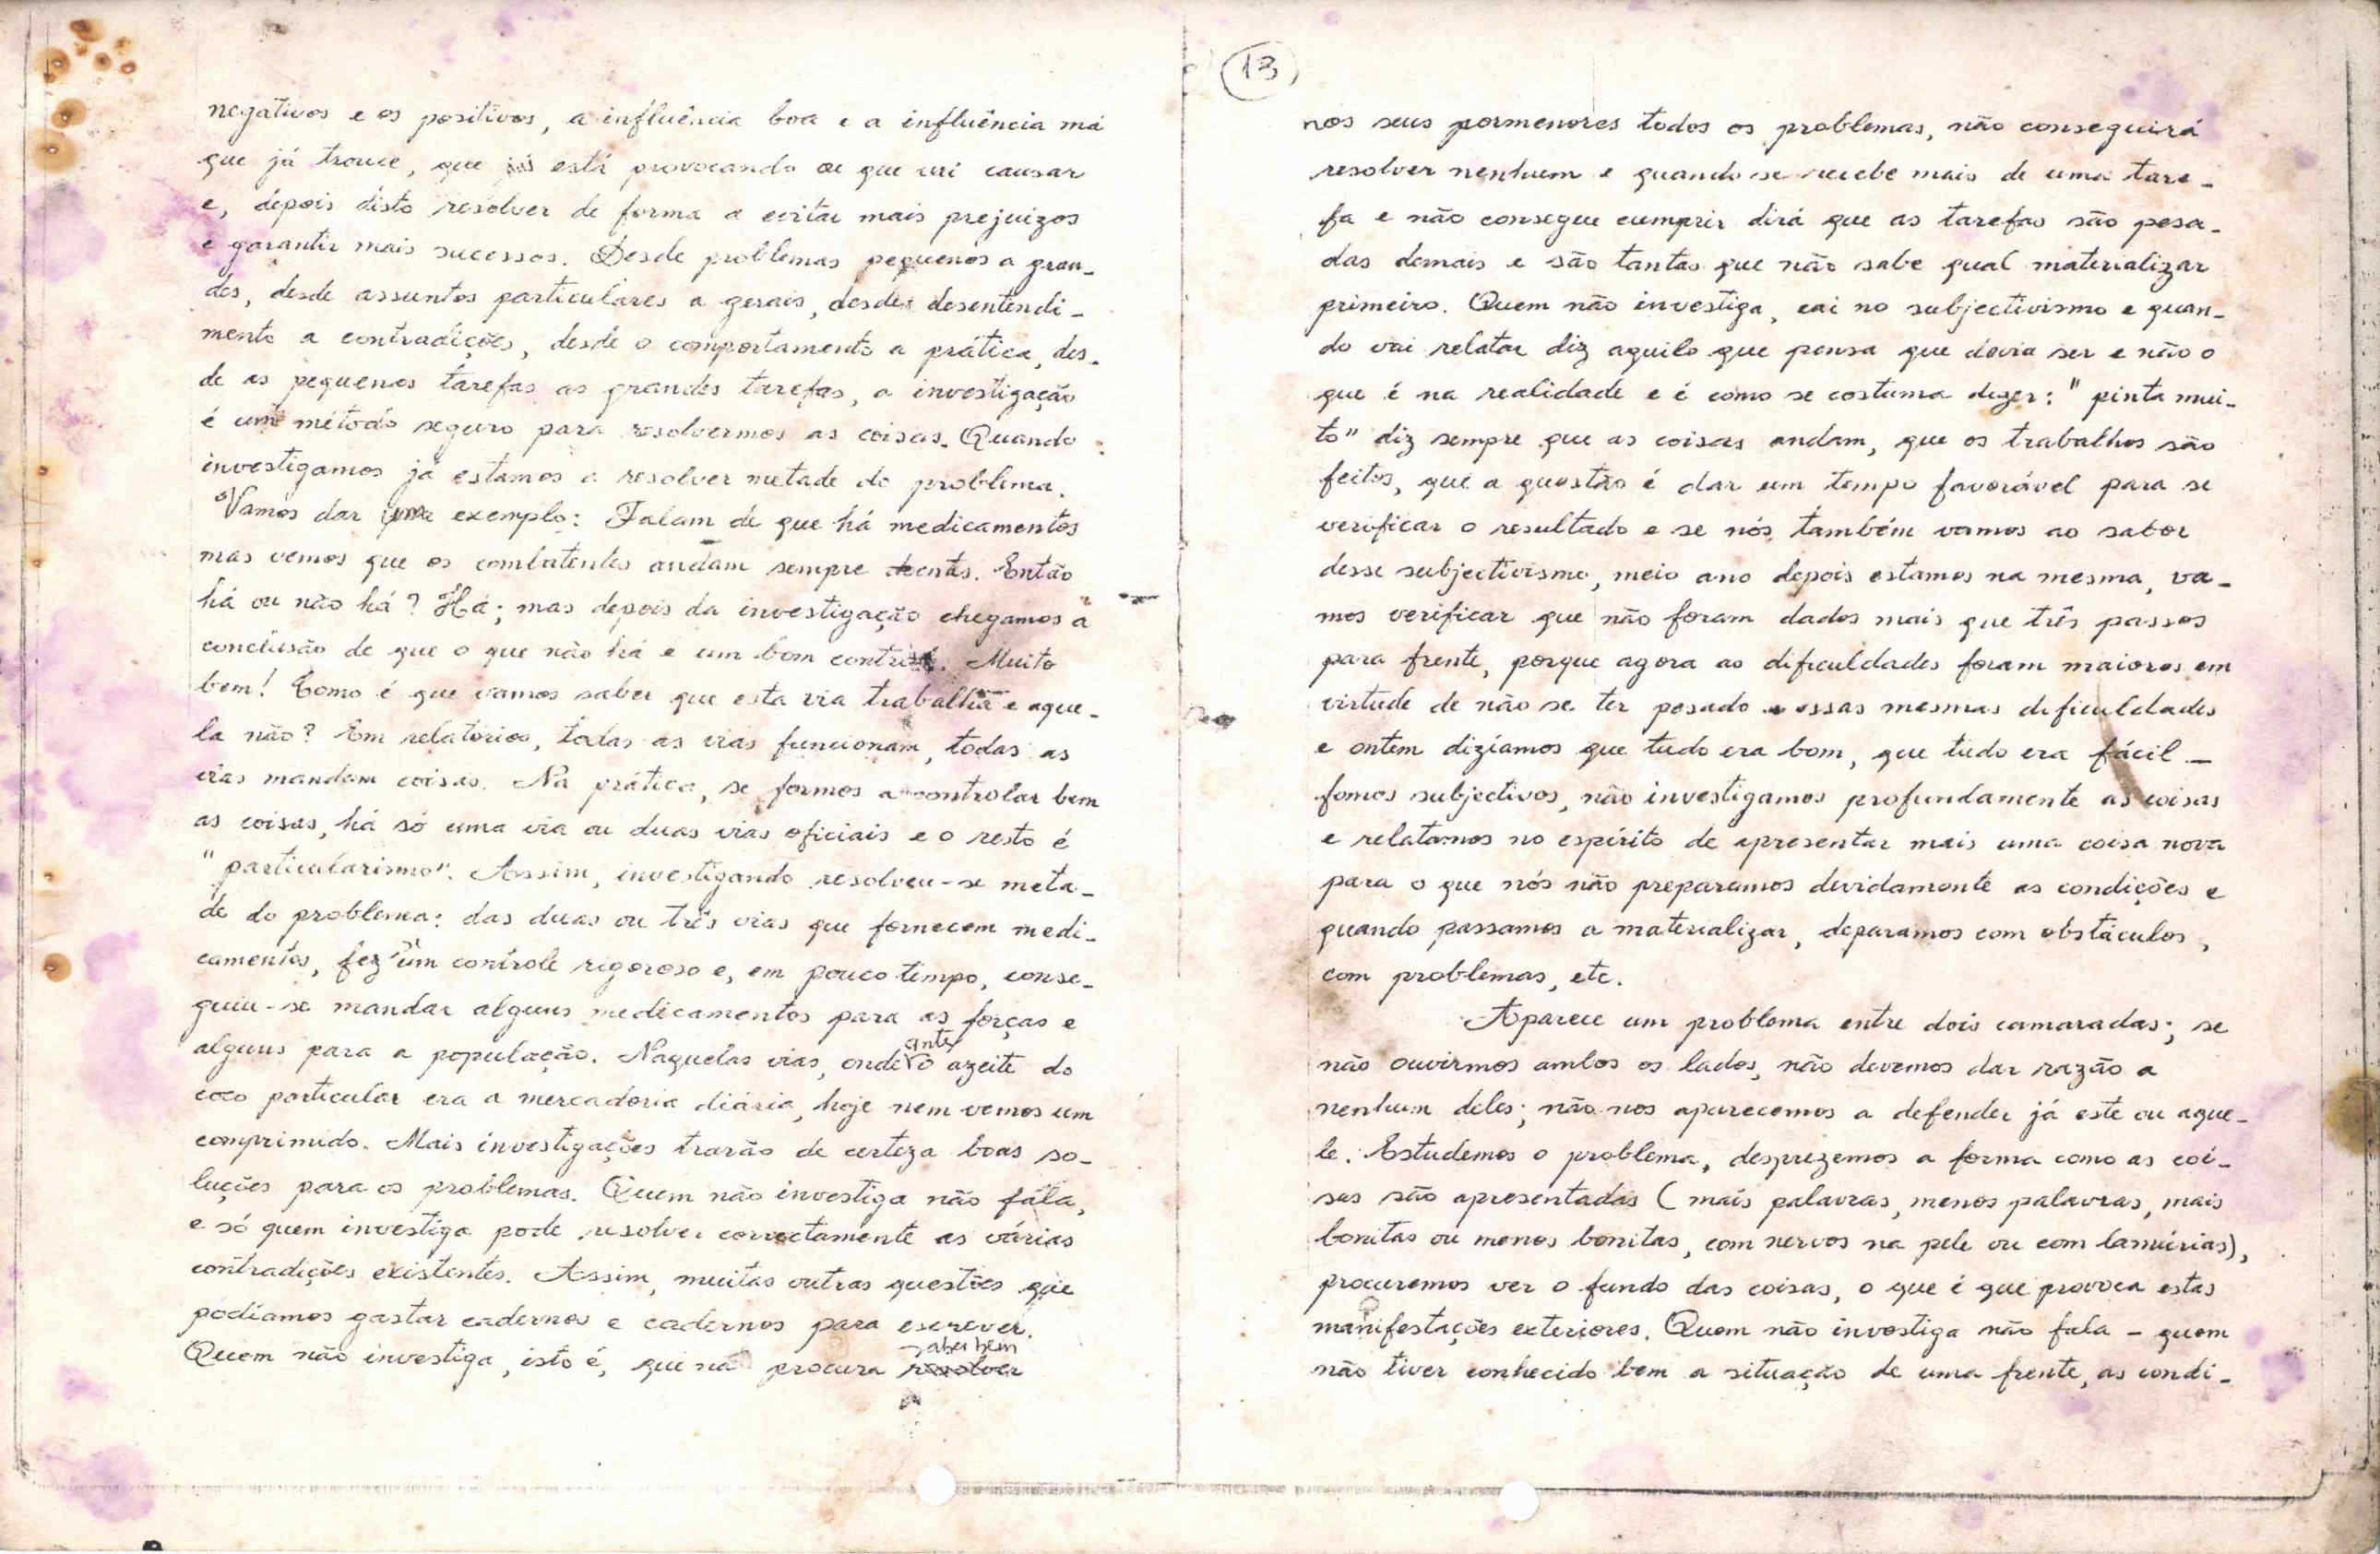 negativos e os positivos, a influência boa e a influência má
que já trouxe, que já está provocando ou que vai causar
e, depois disto resolver de forma a evitar mais prejuizos
e garantir mais sucessos. Desde problemas pequenos a gran-
des, desde assuntos particulares a gerais, desde desentendi-
mento a contradições, desde o comportamento a prática, des-
de as pequenas tarefas as grandes tarefas, a investigação
é um método seguro para resolvermos as coisas. Quando
investigamos já estamos a resolver metade do problema.
Vamos dar um exemplo: Falam de que há medicamentos
mas vemos que os combatentes andam sempre doentes. Então
há ou não há? Há; mas depois da investigação chegamos a
conclusão de que o que não há é um bom controle. Muito
bem! Como é que vamos saber que esta via trabalha e aque-
la não? Em relatórios, todas as vias funcionam, todas as
vias mandam coisas. Na prática, se formos a controlar bem
as coisas, há só uma via ou duas vias oficiais e o resto é
"particularismo". Assim, investigando resolveu-se meta-
de do problema: das duas ou três vias que fornecem medi-
camentos, fez um controle rigoroso e, em pouco tempo, conse-
guiu-se mandar alguns medicamentos para as forças e
alguns para a população. Naquelas vias, onde antes o azeite do
coco particular era a mercadoria diária, hoje nem vemos um
comprimido. Mais investigações trarão de certeza boas so-
luções para os problemas. Quem não investiga não fala,
e só quem investiga pode resolver correctamente as várias
contradições existentes. Assim, muitas outras questões que
podíamos gastar cadernos e cadernos para escrever.
Quem não investiga, isto é, que não procura saber bem
13
nos seus pormenores todos os problemas, não conseguirá
resolver nenhum e quando se recebe mais de uma tare-
fa e não consegue cumprir dirá que as tarefas são pesa-
das demais e são tantas que não sabe qual materializar
primeiro. Quem não investiga, cai no subjectivismo e quan-
do vai relatar diz aquilo que pensa que devia ser e não o
que é na realidade e é como se costuma dizer: "pinta mui-
to" diz sempre que as coisas andam, que os trabalhos são
feitos, que a questão é dar um tempo favorável para se
verificar o resultado e se nós também vamos ao sabor
desse subjectivismo, meio ano depois estamos na mesma, va-
mos verificar que não foram dados mais que três passos
para frente, porque agora as dificuldades foram maiores em
virtude de não se ter pesado essas mesmas dificuldades
e ontem dizíamos que tudo era bom, que tudo era fácil –
fomos subjectivos, não investigamos profundamente as coisas
e relatamos no espírito de apresentar mais uma coisa nova
para o que nós não preparamos devidamente as condições e
quando passamos a materializar, deparamos com obstáculos,
com problemas, etc.
Aparece um problema entre dois camaradas; se
não ouvirmos ambos os lados, não devemos dar razão a
nenhum deles; não nos aparecemos a defender já este ou aque-
le. Estudemos o problema, desprezemos a forma como as coi-
sas são apresentadas (mais palavras, menos palavras, mais
bonitas ou menos bonitas, com nervos na pele ou com lamúrias),
procuremos ver o fundo das coisas, o que é que provoca estas
manifestações exteriores. Quem não investiga não fala – quem
não tiver conhecido bem a situação de uma frente, as condi-